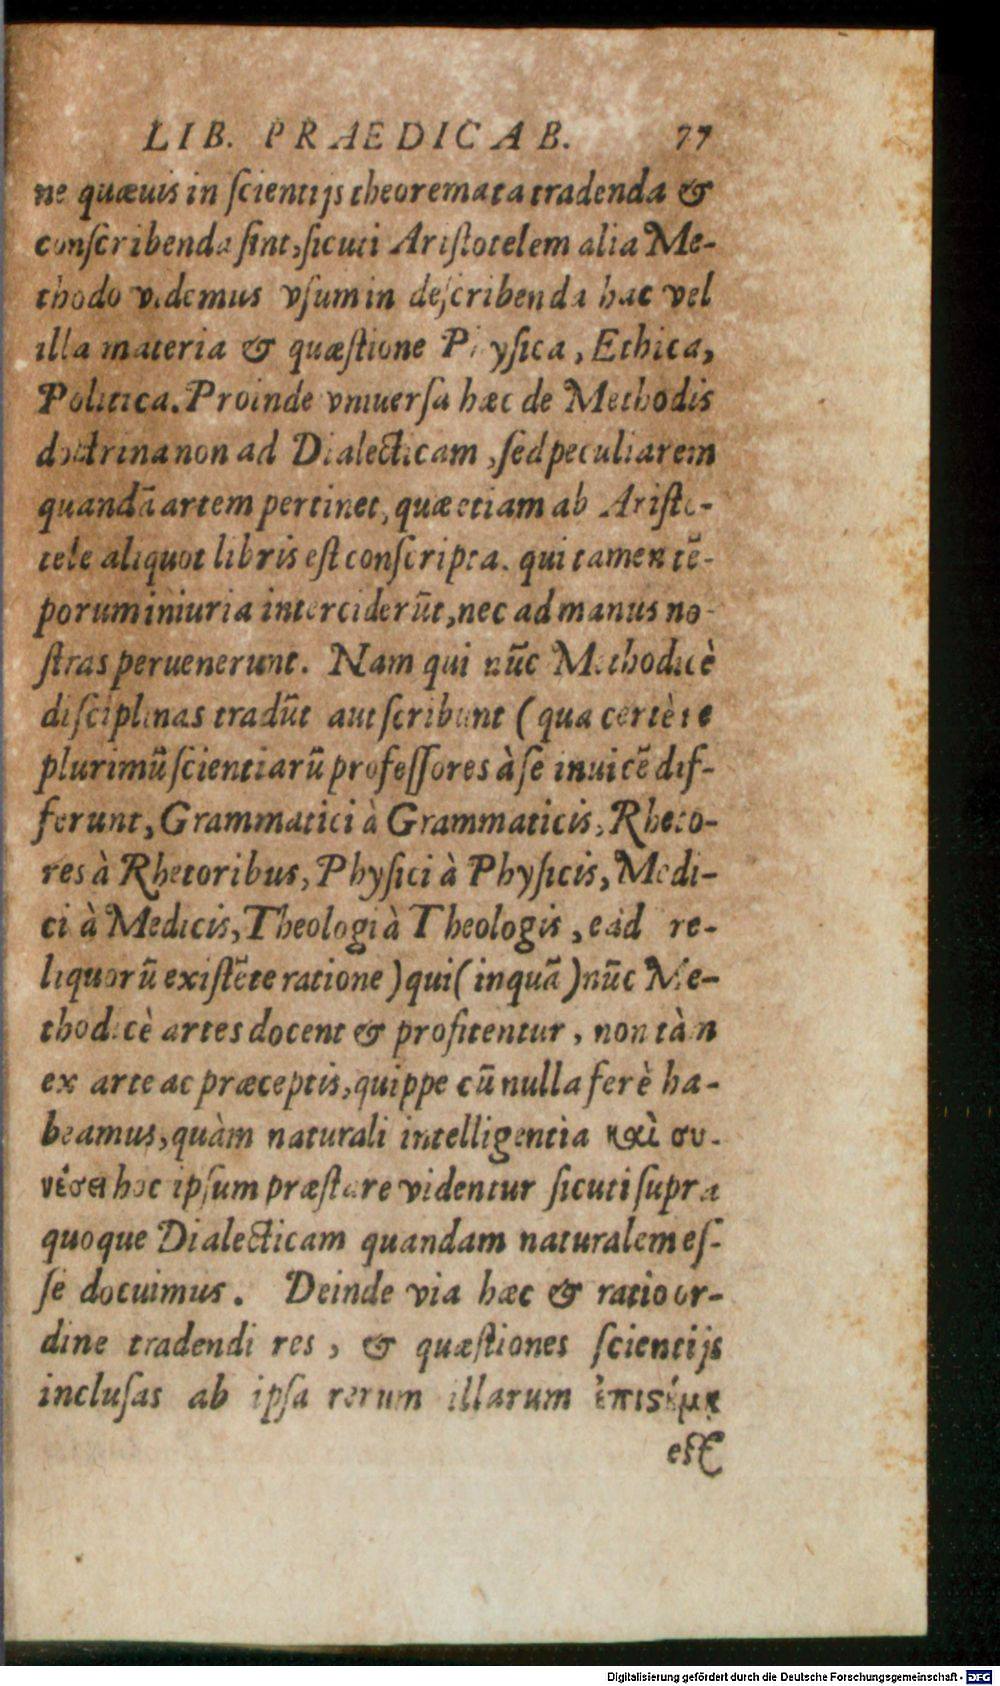 LIB. PRAEDICAB. 77
ne quæuis in ſcientijs theoremata tradenda &
conſcribenda ſint, ſicuti Ariſtotelem alia Me-
thodo videmus vſum in deſcribenda hac vel
illa materia & quæſtione Phyſica, Ethica,
Politica. Proinde vniuerſa hæc de Methodis
doctrina non ad Dialecticam, ſed peculiarem
quandã artem pertinet, quæ etiam ab Ariſto-
tele aliquot libris eſt conſcripta. qui tamen tē-
porum iniuria interciderũt, nec ad manus no-
ſtras peruenerunt. Nam qui nũc Methodicè
diſciplinas tradũt aut ſcribunt (qua certè re
plurimũ ſcientiarũ profeſſores à ſe inuicẽ dif-
ferunt, Grammatici à Grammaticis, Rheto-
res à Rhetoribus, Phyſici à Phyſicis, Medi-
ci à Medicis, Theologi à Theologis, eād re-
liquorũ exiſtẽte ratione) qui (inquã) nũc Me-
thodicè artes docent & profitentur, non tàm
ex arte ac præceptis, quippe cũ nulla ferè ha-
beamus, quàm naturali intelligentia καὶ συ-
νέσει hoc ipſum præſtare videntur ſicuti ſupra
quoque Dialecticam quandam naturalem eſ-
ſe docuimus. Deinde via hæc & ratio or-
dine tradendi res, & quæſtiones ſcientijs
incluſas ab ipſa rerum illarum ἐπιϛήμῃ
eſt
Digitalisierung gefördert durch die Deutsche Forschungsgemeinschaft - DFG